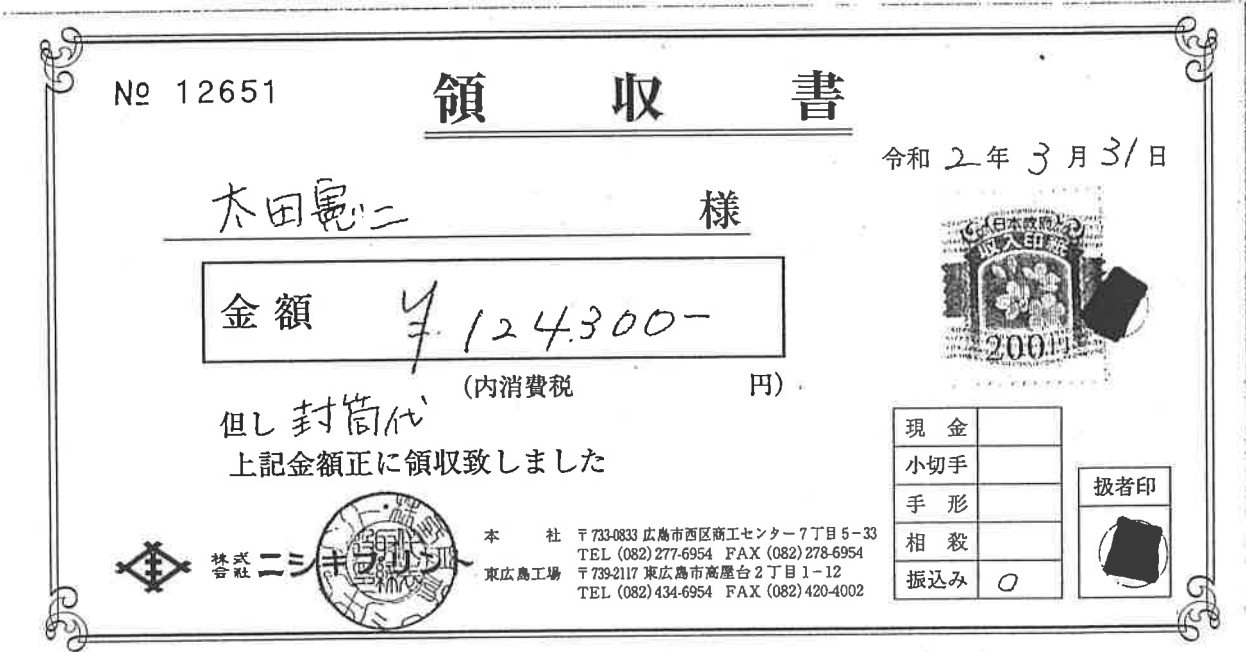 № 12651
領収書
令和 2年 3月 31日
太田憲二 様
日本政府
収入印紙
200円
金額 ¥124,300-
(内消費税 円)
但し 封筒代
上記金額正に領収致しました
現金
小切手
手形
相殺
振込み ○
扱者印
株式会社 ニシキプリント
本社 〒733-0833 広島市西区商工センター7丁目5-33
TEL (082)277-6954 FAX (082)278-6954
東広島工場 〒739-2117 東広島市高屋台2丁目1-12
TEL (082)434-6954 FAX (082)420-4002